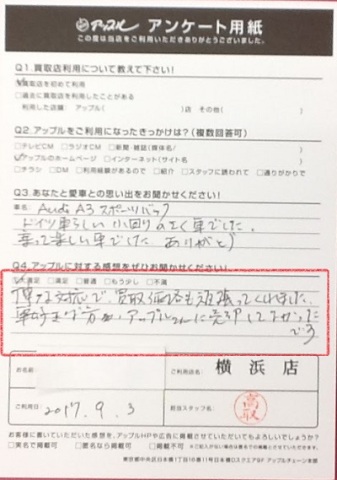 アップル アンケート用紙
この度は当店をご利用いただきありがとうございました。
Q1.買取店利用について教えて下さい!
買取店を初めて利用
□過去に買取店を利用したことがある
利用した店舗: アップル( )店 その他( )
Q2.アップルをご利用になったきっかけは?(複数回答可)
□テレビCM □ラジオCM □新聞・雑誌(媒体名/ )
アップルのホームページ □インターネット(サイト名 )
□チラシ □DM □利用経験があるので □紹介 □スタッフに誘われて □通りがかりで
Q3.あなたと愛車との思い出をお聞かせください!
車名: Audi A3 スポーツバック
ドイツ車らしい 小回りのよく車でした。
乗って楽しい車でした ありがとう
Q4.アップルに対する感想をぜひお聞かせください!
大満足 □満足 □普通 □もう少し □不満
対応で、買取価格も頑張ってくれました。
車好きな方が、アップルさんに売却してよかった
です
お名前:
ご利用店名: 横浜店
ご利用日: 2017. 9. 3
担当スタッフ名: 高取
お客様に書いていただいた感想を、アップルHPや広告に掲載させていただいてもよろしいでしょうか?
□実名で掲載可 □匿名なら掲載可 □掲載不可
東京都中央区日本橋1丁目16番11号日本橋Dスクエア5F アップルチェーン本部